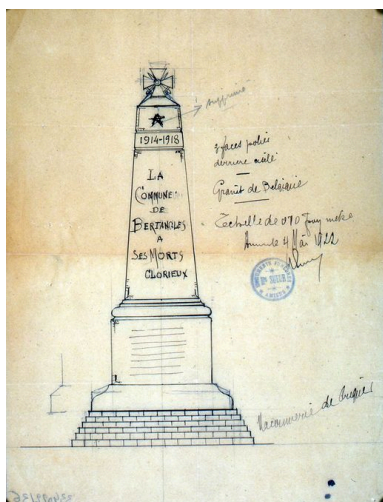 supprimé
1914-1918
LA
COMMUNE
DE
BERTANGLES
A
SES MORTS
GLORIEUX
3 faces polies
derrière
Granit de Belgique
Echelle de 0.10 pour mètre
4 Mai 1922
AMIENS
Maçonnerie de briques